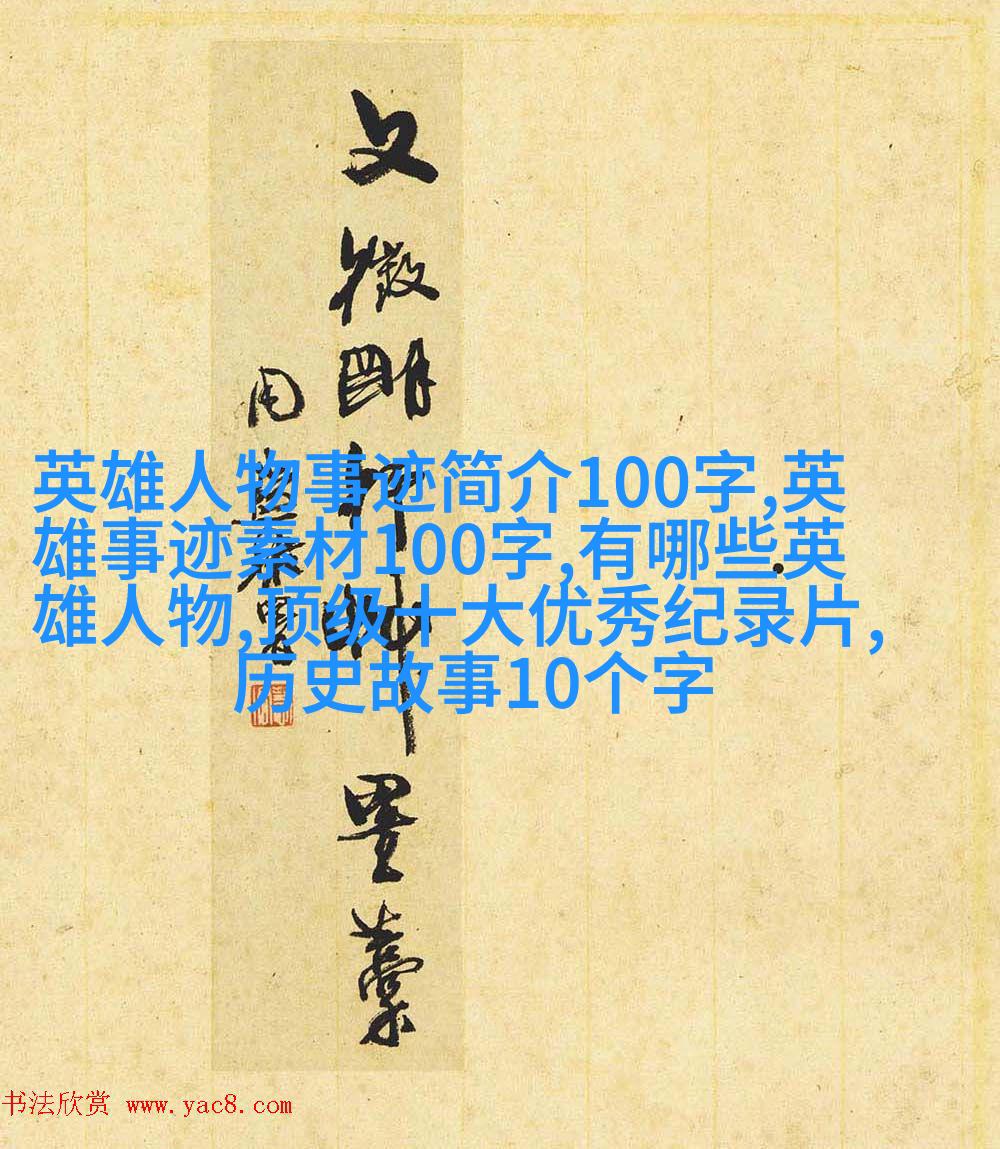 文徵明
墨藁
英雄人物事迹简介100字,英
雄事迹素材100字,有哪些英
雄人物,顶级十大优秀纪录片,
历史故事10个字
书法欣赏 www.yac8.com